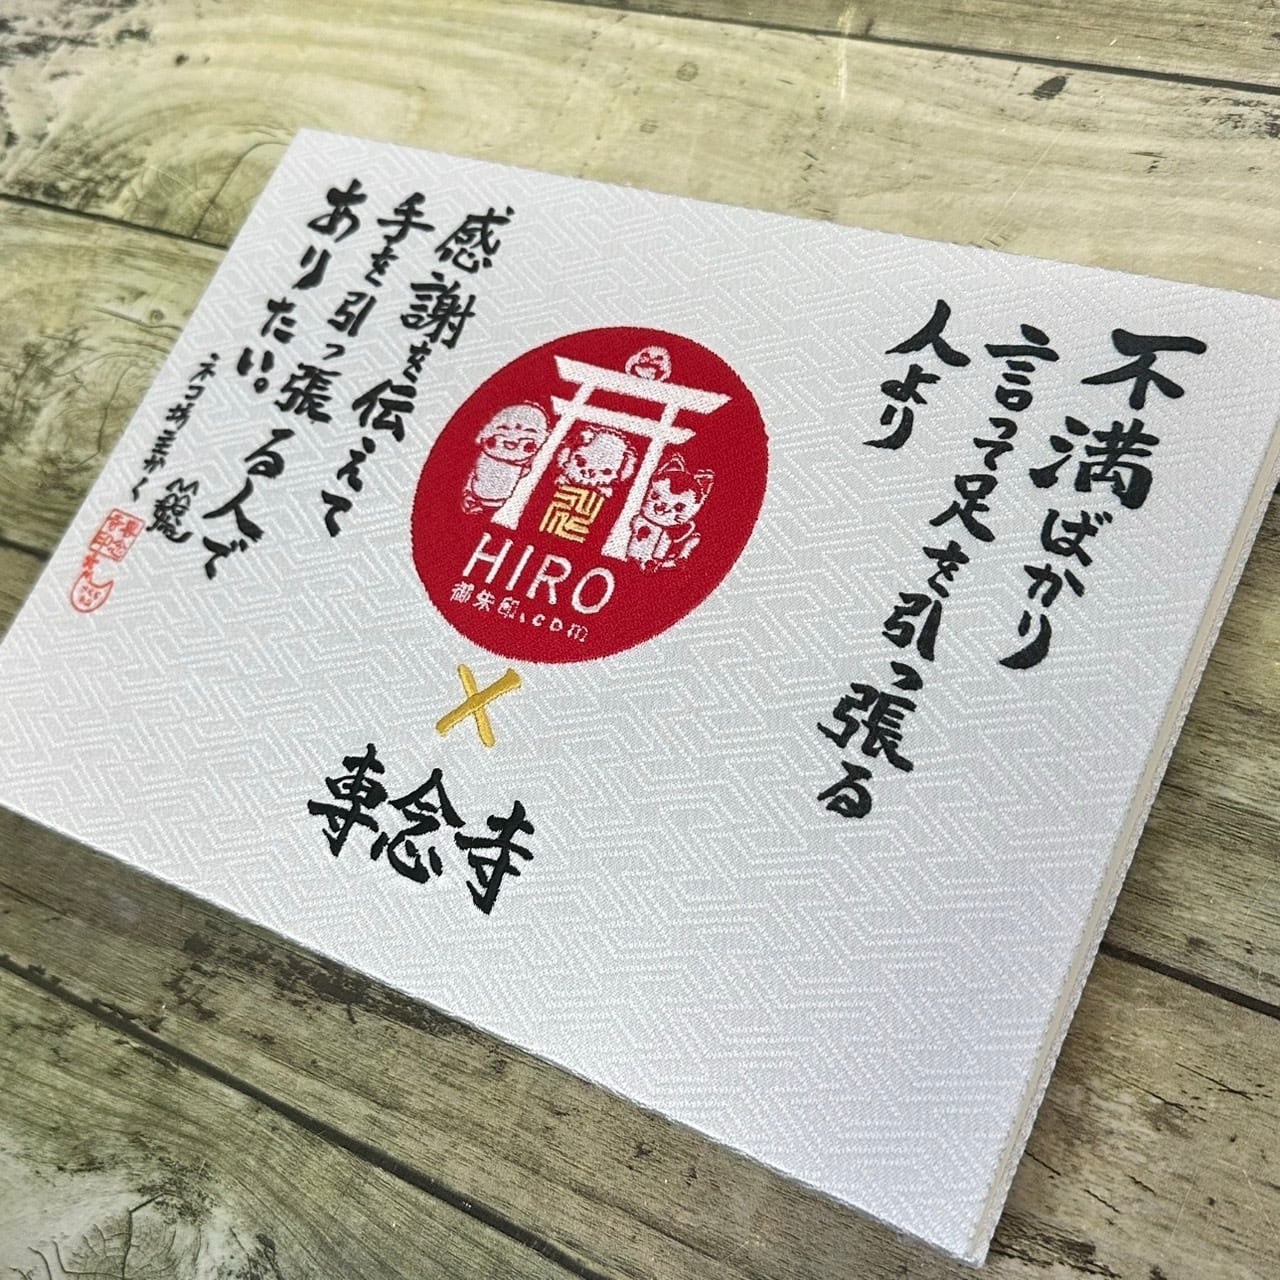 不満ばかり
言って足を引っ張る
人より
感謝を伝えて
手を引っ張る人で
ありたい。
ネコ坊主かく
HIRO
御朱印.com
×
専念寺